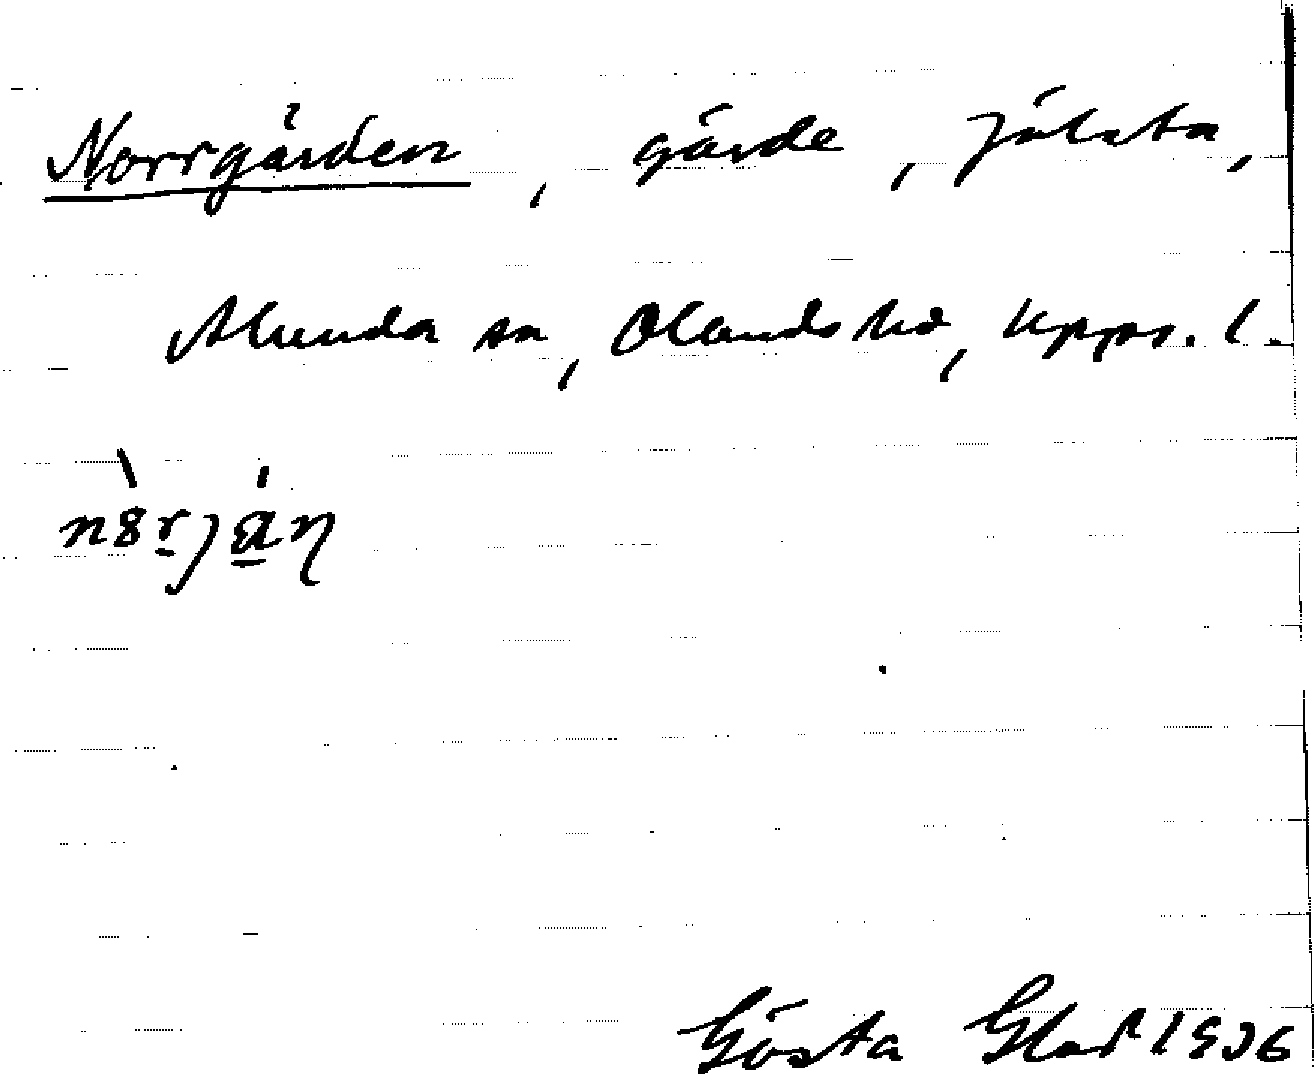 Norrgården, gärde, Jålsta,
Alunda sn, Olands hd, Upps. l.
Gösta Glad 1936